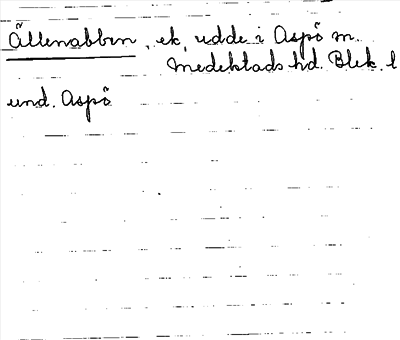 Ållenabben, ek, udde i Aspö m.
Medelstads hd. Blek. l
und. Aspö